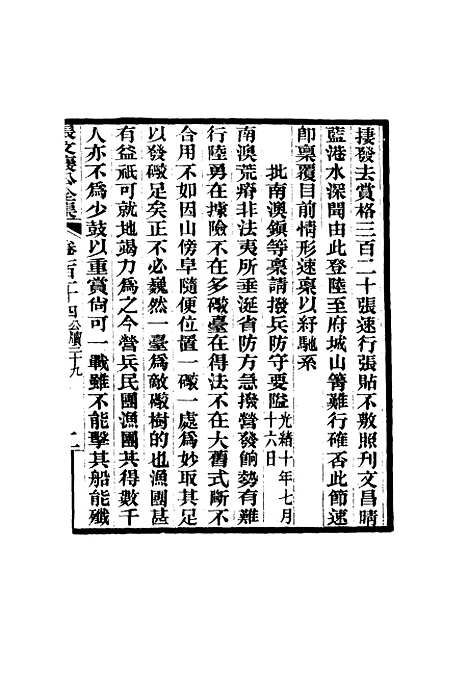 捷發去賞格三百二十張速行張貼不敷照刊文昌晴
藍港水深聞由此登陸至府城山箐難行確否此節速
卽稟覆目前情形速稟以紓馳系
批南澳鎭等稟請撥兵防守要隘光緒十年七月十六日
南澳荒瘠非法夷所垂涎省防方急撥營發餉勢有難
行陸勇在據險不在多礮臺在得法不在大舊式斷不
合用不如因山傍阜隨便位置一礮一處爲妙取其足
以發礮足矣正不必巍然一臺爲敵礮樹的也漁團甚
有益祇可就地竭力爲之今營兵民團漁團共得數千
人亦不爲少鼓以重賞尙可一戰雖不能擊其船能殲
張文襄公全集 卷一百二十四 公牘三十九